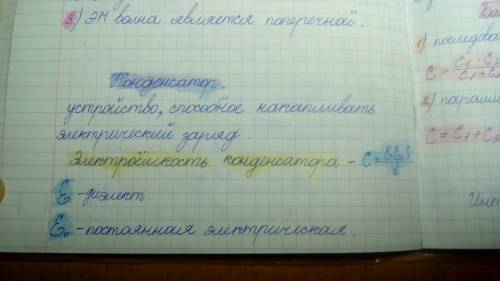 3) ЭМ волна является поперечной.
Конденсатор.
устройство, способное накапливать
электрический заряд.
Электроёмкость конденсатора - C = εε₀S/d
ε - диэлект.
ε₀ - постоянная электрическая.
1) последова
C = C₁ · C₂/C₁ + C₂
2) паралл
C = C₁ + C₂